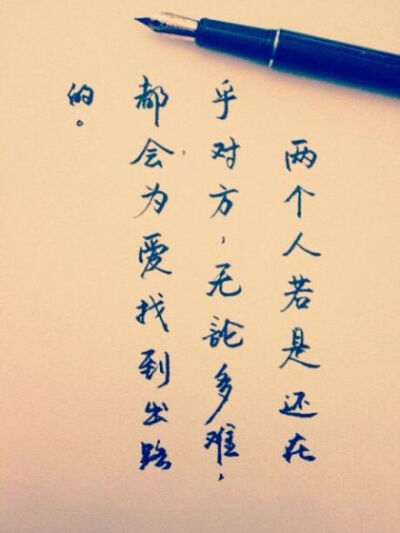 两个人若是还在
乎对方，无論多难，
都会为爱找到出路
的。